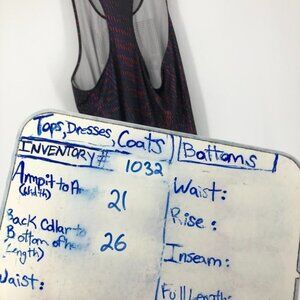 Tops, Dresses, Coats
INVENTORY # 1032
Armpit to
(Width)
21
Back Collar to
Bottom of hem
(Length)
26
Waist:
Bottoms
Waist:
Rise:
Inseam:
Full Length: